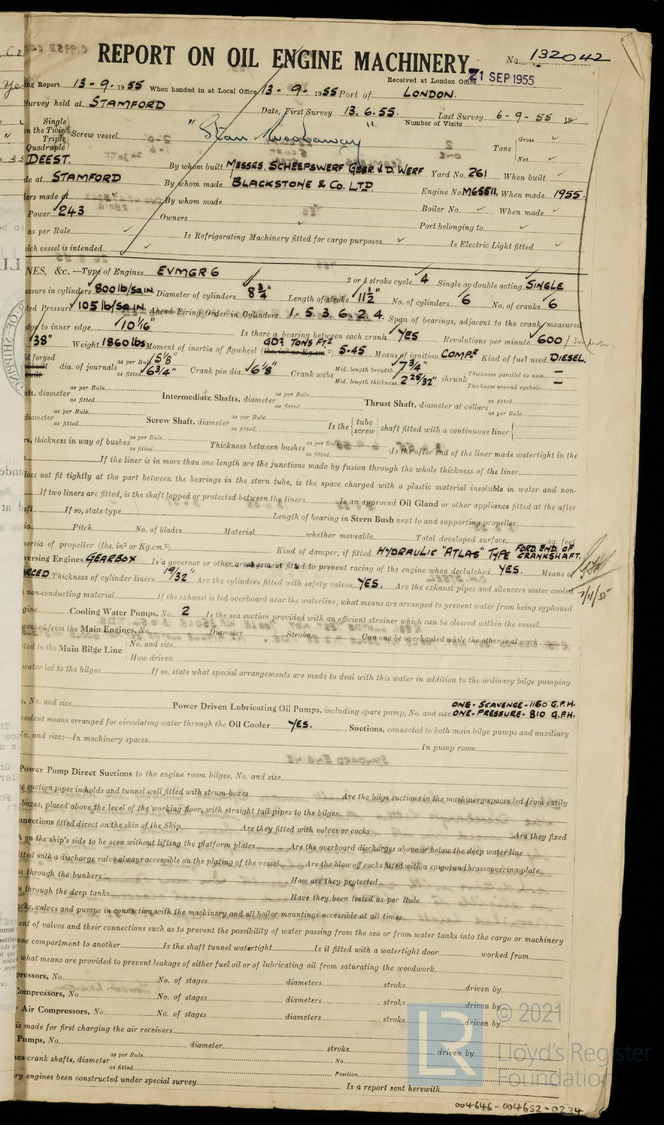 REPORT ON OIL ENGINE MACHINERY.
No. 132042
Received at London Office 21 SEP 1955
ing Report 13-9-1955 When handed in at Local Office 13-9-1955 Port of LONDON.
Survey held at STAMFORD Date, First Survey 13.6.55. Last Survey 6-9-55 19
Number of Visits
Single
on the Twin
Triple
Quadruple
Screw vessel
Tons
Gross
Net
DEEST. By whom built MESSRS. SCHEEPSWERF GEBR. V.D. WERF Yard No. 261 When built
de at STAMFORD By whom made BLACKSTONE & CO. LTD Engine No. When made 1955.
ers made at By whom made Boiler No. When made
Power 243 Owners Port belonging to
as per Rule Is Refrigerating Machinery fitted for cargo purposes Is Electric Light fitted
ich vessel is intended
NES, &c.—Type of Engines EVMGR6 2 or 4 stroke cycle 4 Single or double acting SINGLE
essure in cylinders 800 lb/sq.in. Diameter of cylinders 8 3/4" Length of stroke 11 1/2" No. of cylinders 6 No. of cranks 6
ted Pressure 105 lb/sq.in. Ahead Firing Order in Cylinders 1. 5. 3. 6. 2. 4. Span of bearings, adjacent to the crank, measured
edge to inner edge 10 1/16" Is there a bearing between each crank YES Revolutions per minute 600
38" Weight 1860 lbs Moment of inertia of flywheel GD² TONS FT² 5.45 Means of ignition COMPN Kind of fuel used DIESEL.
dia. of journals as per Rule 5 1/8" as fitted 6 3/4" Crank pin dia. 6 1/8" Crank webs Mid. length breadth 7 3/4" Mid. length thickness 2 25/32" shrunk Thickness parallel to axis — Thickness around eyehole —
aft, diameter as per Rule as fitted Intermediate Shafts, diameter as per Rule as fitted Thrust Shaft, diameter at collars as fitted as per Rule
diameter as per Rule as fitted Screw Shaft, diameter as per Rule as fitted Is the { tube screw } shaft fitted with a continuous liner {
s, thickness in way of bushes as per Rule as fitted Thickness between bushes as per Rule as fitted Is the after end of the liner made watertight in the
If the liner is in more than one length are the junctions made by fusion through the whole thickness of the liner
does not fit tightly at the part between the bearings in the stern tube, is the space charged with a plastic material insoluble in water and non-
If two liners are fitted, is the shaft lapped or protected between the liners Is an approved Oil Gland or other appliance fitted at the after
If so, state type Length of bearing in Stern Bush next to and supporting propeller
Pitch No. of blades Material whether moveable Total developed surface sq. feet
nertia of propeller (lbs. in² or Kg.cm.²) Kind of damper, if fitted HYDRAULIC "ATLAS" TYPE FORD END OF CRANKSHAFT.
versing Engines GEARBOX Is a governor or other arrangement fitted to prevent racing of the engine when declutched YES. Means of
RCED Thickness of cylinder liners 19/32" Are the cylinders fitted with safety valves YES. Are the exhaust pipes and silencers water cooled
non-conducting material If the exhaust is led overboard near the waterline, what means are arranged to prevent water from being syphoned
gine Cooling Water Pumps, No. 2 Is the sea suction provided with an efficient strainer which can be cleared within the vessel
worked from the Main Engines, No. Diameter Stroke Can one be overhauled while the other is at work
ted to the Main Bilge Line { No. and size How driven
water led to the bilges If so, state what special arrangements are made to deal with this water in addition to the ordinary bilge pumping
, No. and size Power Driven Lubricating Oil Pumps, including spare pump, No. and size ONE - SCAVENGE - 1150 G.P.H. ONE - PRESSURE - 810 G.P.H.
ndent means arranged for circulating water through the Oil Cooler YES. Suctions, connected to both main bilge pumps and auxiliary
o. and size:—In machinery spaces In pump room
Power Pump Direct Suctions to the engine room bilges, No. and size
e suction pipes in holds and tunnel well fitted with strum-boxes Are the bilge suctions in the machinery spaces led from easily
boxes, placed above the level of the working floor, with straight tail pipes to the bilges
nnections fitted direct on the skin of the Ship Are they fitted with valves or cocks Are they fixed
h on the ship's side to be seen without lifting the platform plates Are the overboard discharges above or below the deep water line
itted with a discharge valve always accessible on the plating of the vessel Are the blow off cocks fitted with a spigot and brass covering plate
s through the bunkers How are they protected
through the deep tanks Have they been tested as per Rule
ocks, valves and pumps in connection with the machinery and all boiler mountings accessible at all times
ent of valves and their connections such as to prevent the possibility of water passing from the sea or from water tanks into the cargo or machinery
one compartment to another Is the shaft tunnel watertight Is it fitted with a watertight door worked from
what means are provided to prevent leakage of either fuel oil or of lubricating oil from saturating the woodwork
pressors, No. No. of stages diameters stroke driven by
Compressors, No. No. of stages diameters stroke driven by
Air Compressors, No. No. of stages diameters stroke driven by
is made for first charging the air receivers
Pumps, No. diameter stroke driven by
es crank shafts, diameter as per Rule as fitted No. Position
ry engines been constructed under special survey Is a report sent herewith
© 2021
LR
Lloyd's Register
Foundation
004646-004652-0234